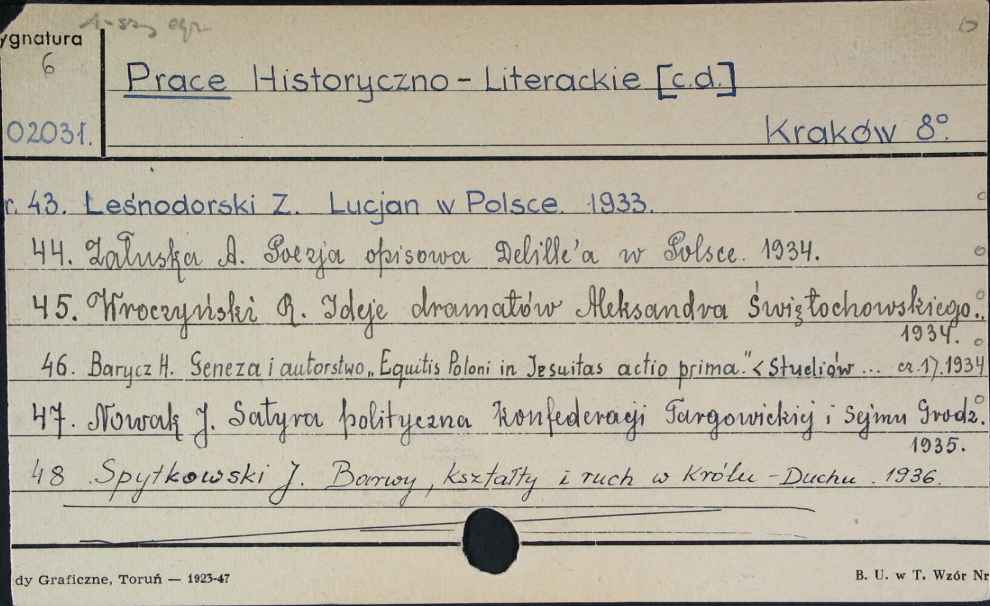 1-szy egz.
ygnatura
6
02031.
Prace Historyczno - Literackie [c.d.]
Kraków 8°.
r. 43. Leśnodorski Z. Lucjan w Polsce. 1933.
44. Załuska A. Poezja opisowa Delille'a w Polsce. 1934.
45. Wroczyński R. Ideje dramatów Aleksandra Świętochowskiego.
1934.
46. Barycz H. Geneza i autorstwo „Equitis Poloni in Jesuitas actio prima." < Studiów ... cz. 1). 1934
47. Nowak J. Satyra polityczna Konfederacji Targowickiej i Sejmu Grodz.
1935.
48 Spytkowski J. Barwy, kształty i ruch w Królu - Duchu. 1936.
dy Graficzne, Toruń — 1923-47
B. U. w T. Wzór Nr